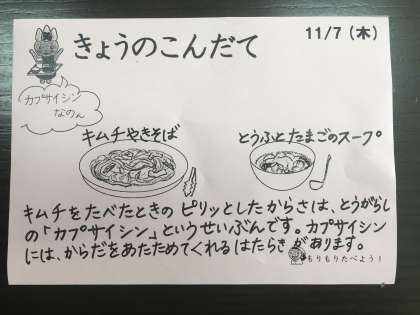 きょうのこんだて
11/7 (木)
カプサイシン
なのん
キムチやきそば
とうふとたまごのスープ
キムチをたべたときの ピリッとしたからさは、とうがらし
の「カプサイシン」というせいぶんです。カプサイシン
には、からだをあたためてくれるはたらきがあります。
もりもりたべよう！